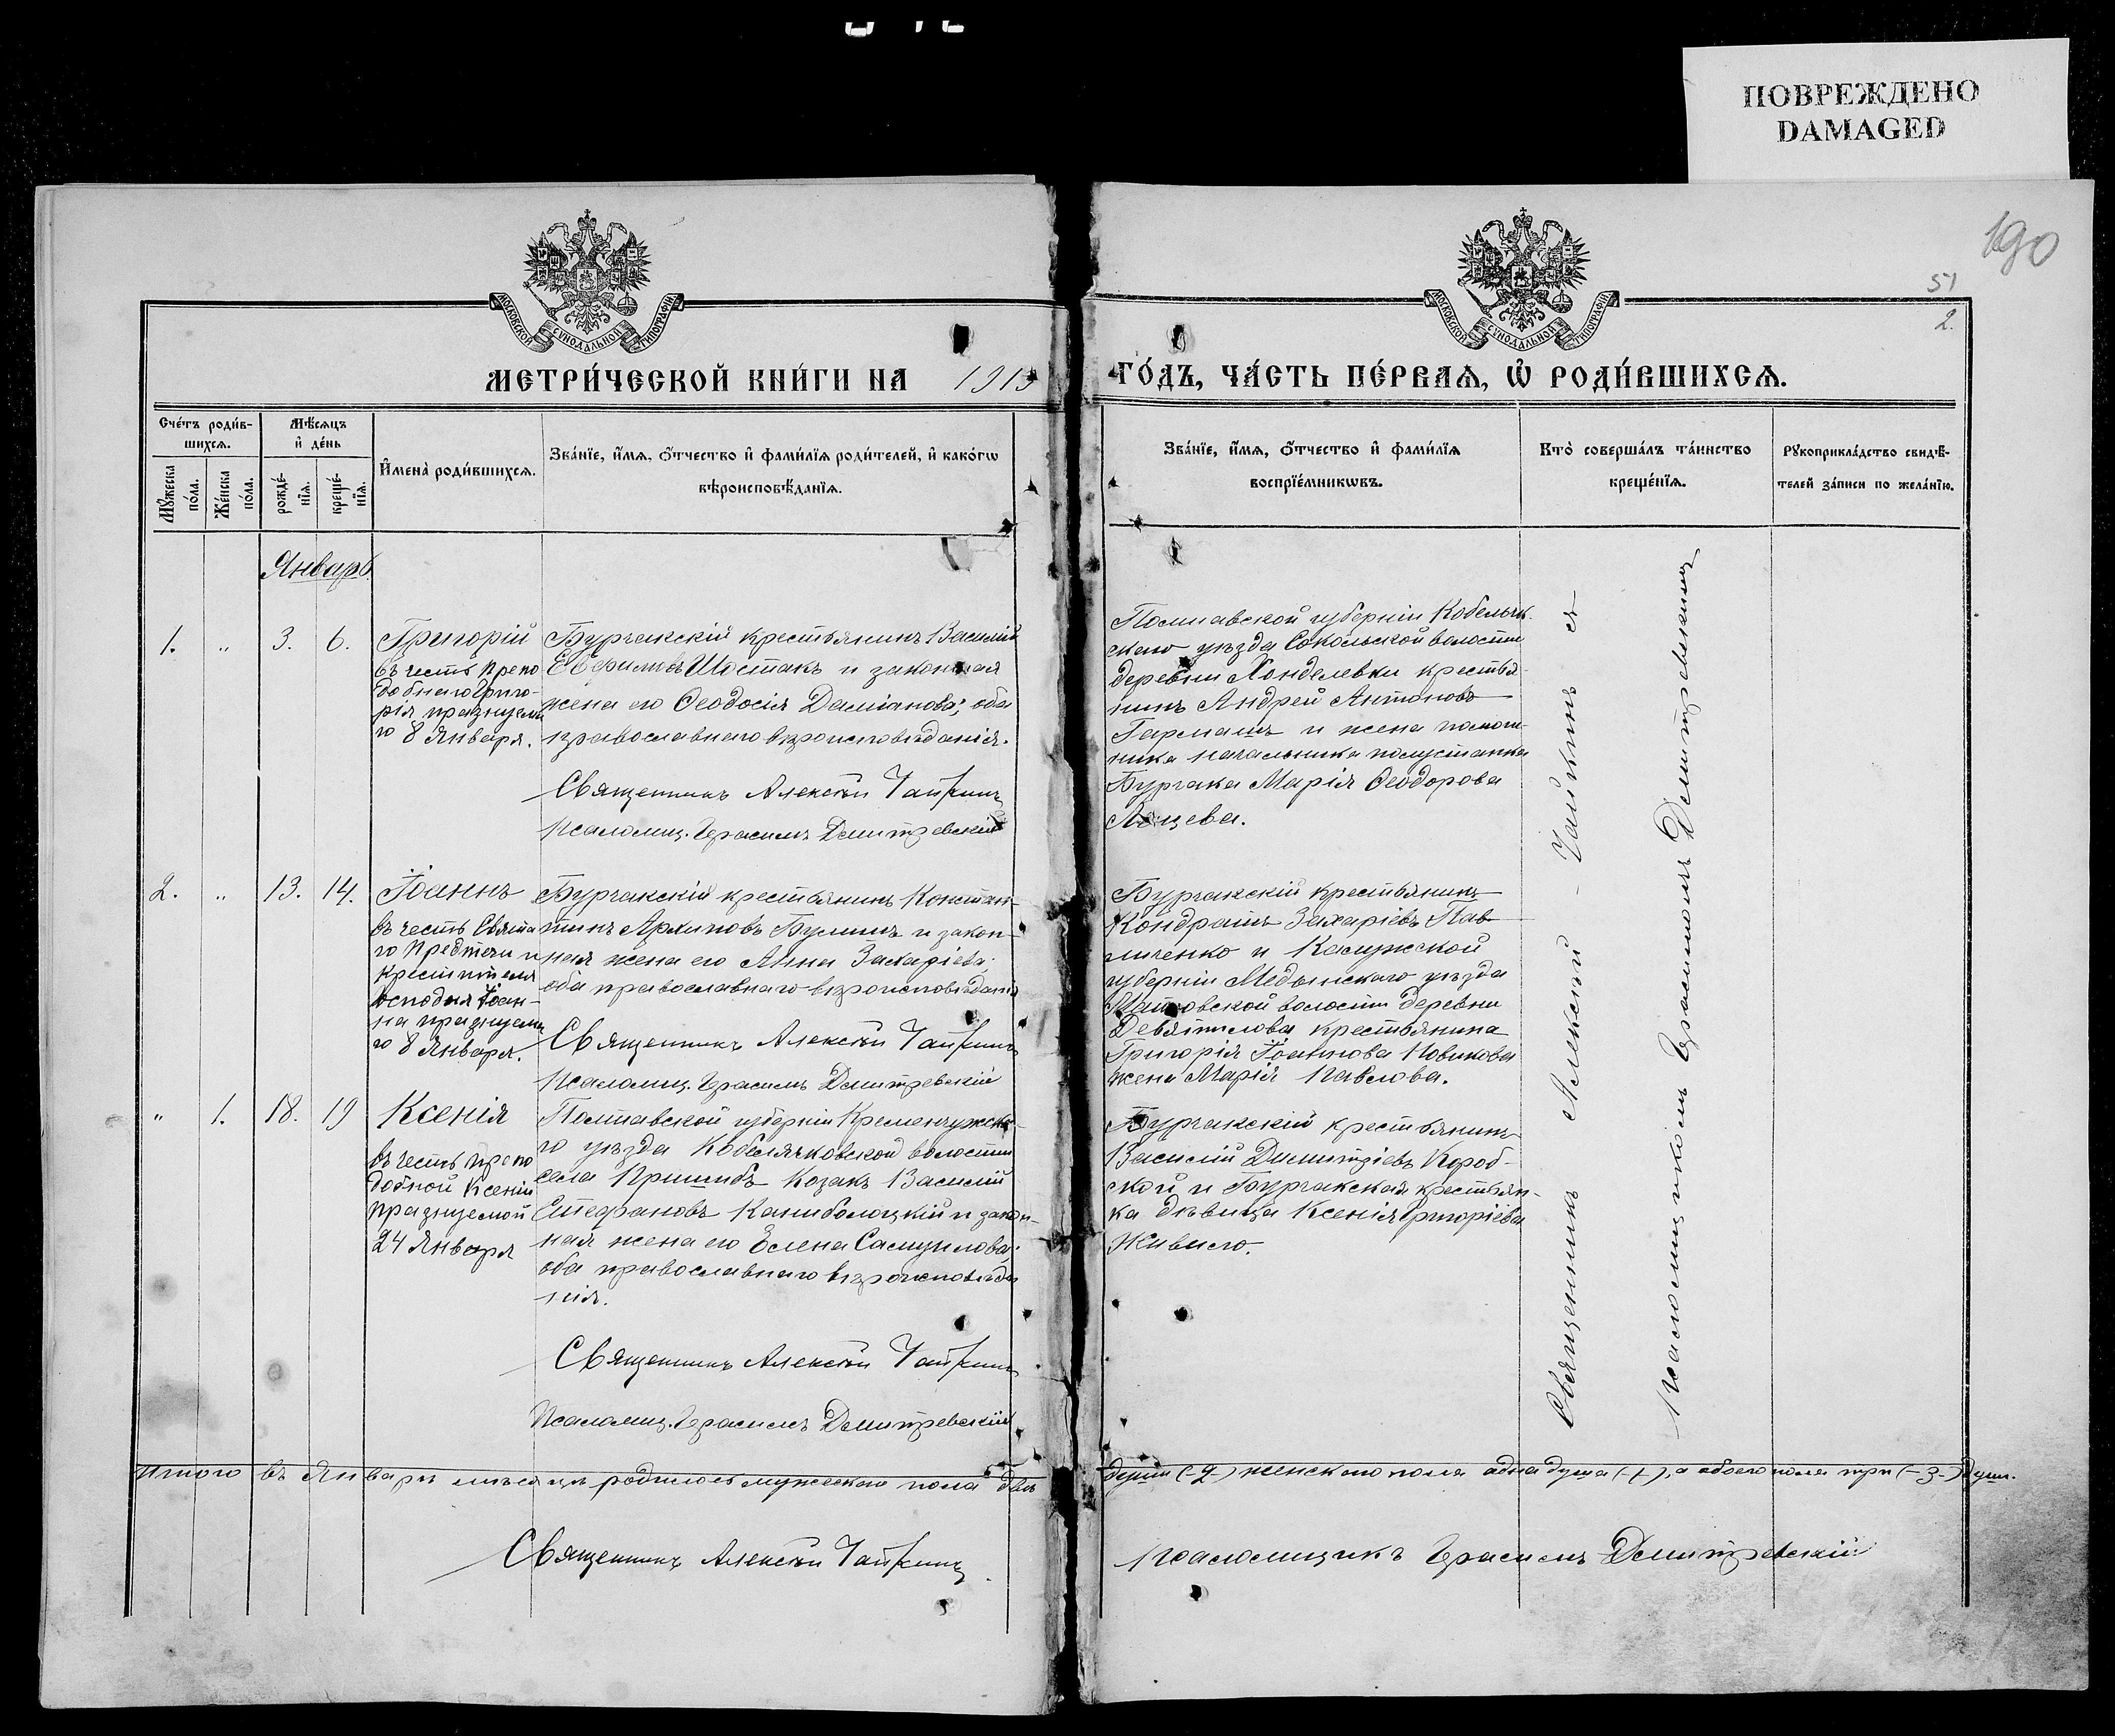 ПОВРЕЖДЕНО
DAMAGED
190
51
2.
МОСКОВСКОЙ СУНОДАЛЬНОЙ ТИПОГРАФІИ
МОСКОВСКОЙ СУНОДАЛЬНОЙ ТИПОГРАФІИ
МЕТРИ́ЧЕСКОЙ КНИ́ГИ НА 1913
ГО́ДЪ, ЧА́СТЬ ПЕ́РВАѦ, Ѡ҆ РОДИ́ВШИХСѦ.
Сче́тъ роди́в-
шихсѧ.
Мꙋ́жеска
по́ла.
Же́нска
по́ла.
Мѣ́сѧцъ
и҆ де́нь
рожде́-
нїѧ.
креще́-
нїѧ.
И҆мена̀ роди́вшихсѧ.
Зва́нїе, и҆́мѧ, ѻ҆́тчество и҆ фами́лїѧ роди́телей, и҆ како́гѡ
вѣроисповѣ́данїѧ.
Зва́нїе, и҆́мѧ, ѻ҆́тчество и҆ фами́лїѧ
воспрїе́мникѡвъ.
Кто̀ соверша́лъ та́инство
креще́нїѧ.
Рꙋкоприкла́дство свидѣ́-
телей за́писи по жела́нїю.
Январь
1.
"
3.
6.
Григорій
въ честь препо
добнаго Григо-
рія празднуема
го 8 Января.
Бургакскій крестьянинъ Василій
Евфимовъ Шостакъ и законная
жена его Ѳеодосія Даміанова; оба
православнаго вѣроисповѣданія.
Священникъ Алексѣй Чайкинъ
Псаломщ. Герасимъ Дмитревскій
Полтавской губерніи Кобеляк-
скаго уѣзда Сокольской волости
деревни Хонделевки крестья-
нинъ Андрей Антоновъ
и жена помощ-
ника начальника полустанка
Бургака Марія Ѳеодорова
2.
"
13.
14.
Іоаннъ
въ честь Свята
го Предтечи и
крестителя
Господня Іоан-
на празднуема
го 8 Января.
Бургакскій крестьянинъ Констан-
тинъ Архиповъ и закон-
ная жена его Анна Захаріева;
оба православнаго вѣроисповѣданія
Священникъ Алексѣй Чайкинъ
Псаломщ. Герасимъ Дмитревскій
Бургакскій крестьянинъ
Кондратъ Захаріевъ Пав-
личенко и Калужской
губерніи Медынскаго уѣзда
волости деревни
крестьянина
Григорія Іоаннова Новикова
жена Марія Павлова.
"
1.
18.
19
Ксенія
въ честь препо
добной Ксеніи
празднуемой
24 Января
Полтавской губерніи Кременчужска-
го уѣзда Кобелячковской волости
села Пришибъ козакъ Василій
Стефановъ Каниболоцкій и закон-
ная жена его Елена Самуилова;
оба православнаго вѣроисповѣда
нія.
Священникъ Алексѣй Чайкинъ
Псаломщ. Герасимъ Дмитревскій
Бургакскій крестьянинъ
Василій Димитріевъ Короб-
ской и Бургакская крестьян-
ка дѣвица Ксенія Григоріева
Живило.
Священникъ Алексѣй Чайкинъ съ
псаломщикомъ Герасимомъ Дмитревскимъ
Итого въ Январѣ мѣсяцѣ родилось мужескаго пола двѣ
души (-2) женскаго пола одна душа (-1), а обоего пола три (-3-) души.
Священникъ Алексѣй Чайкинъ.
Псаломщикъ Герасимъ Дмитревскій